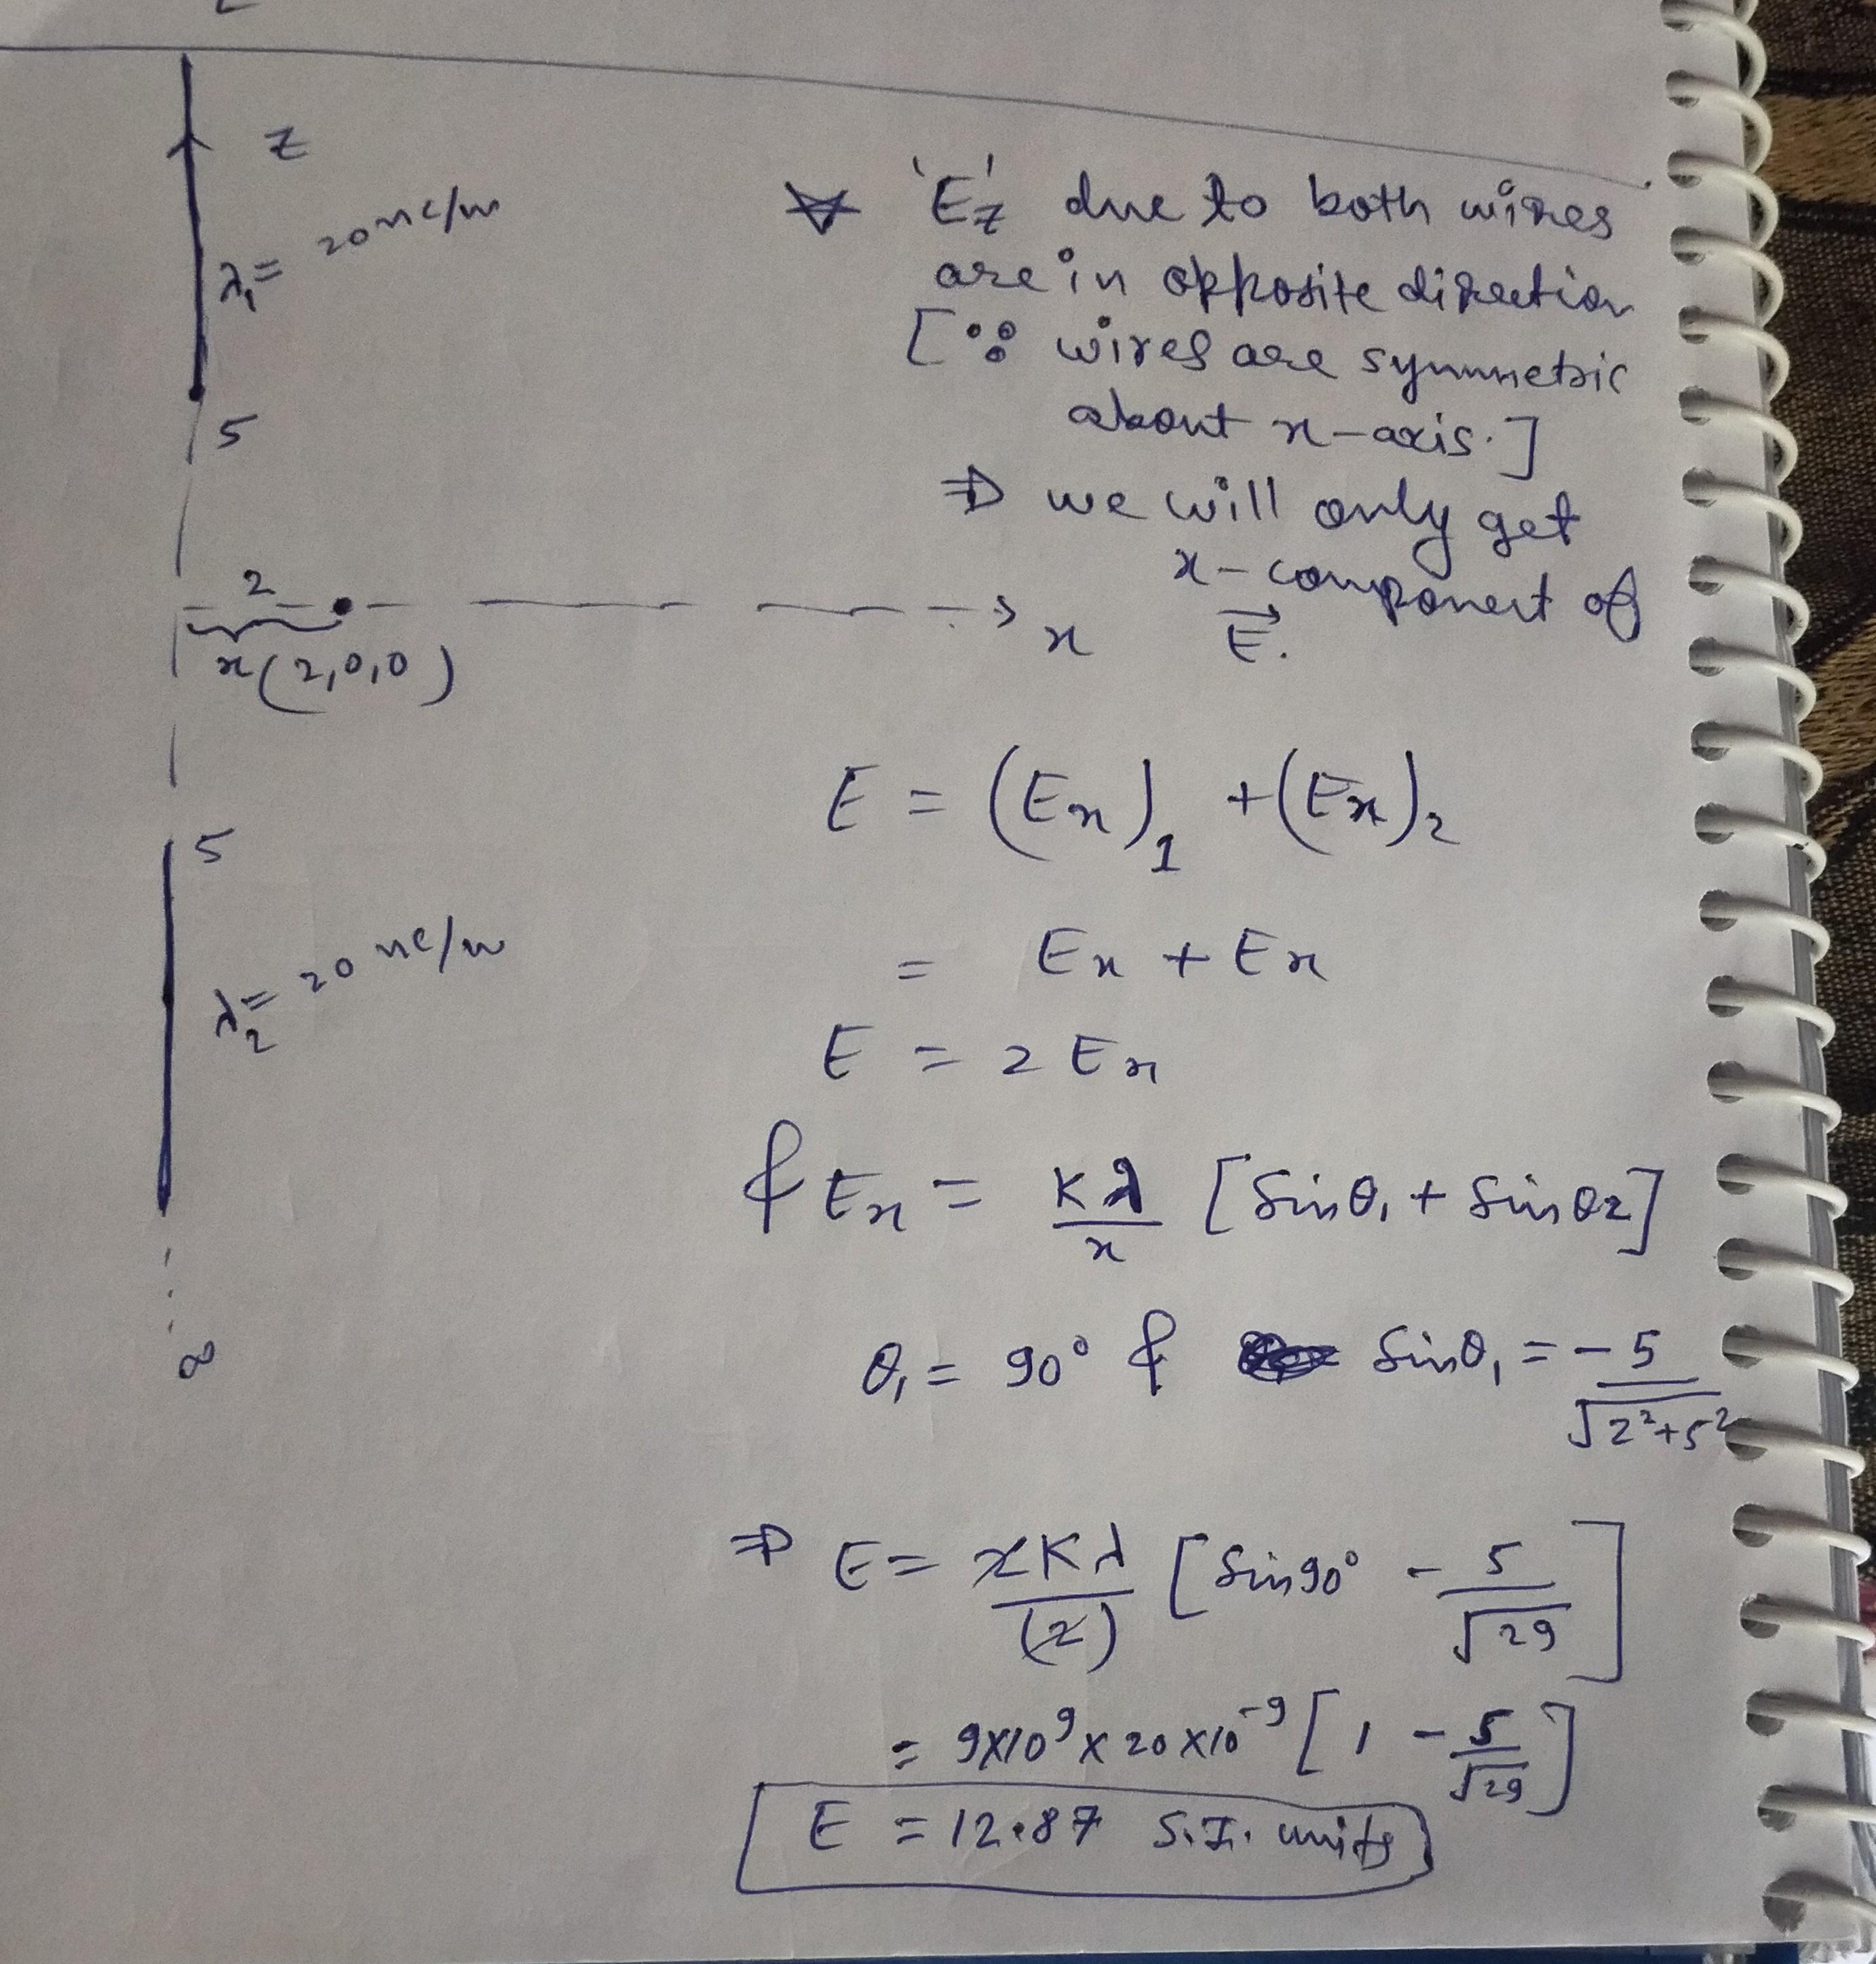 z
λ₁ = 20 nC/m
5
2
x
x(2,0,0)
5
λ₂ = 20 nC/m
∞
'E'z due to both wires
are in opposite direction
[∵ wires are symmetric
about x-axis.]
⇒ we will only get
x-component of
E⃗.
E = (Ex)₁ + (Ex)₂
= Ex + Ex
E = 2 Ex
& Ex = Kλ/x [Sinθ₁ + Sinθ₂]
θ₁ = 90° & Sinθ₁ = -5/√(2²+5²)
⇒ E = 2Kλ/(2) [Sin90° - 5/√29]
= 9×10⁹ × 20×10⁻⁹ [1 - 5/√29]
E = 12.87 S.I. units